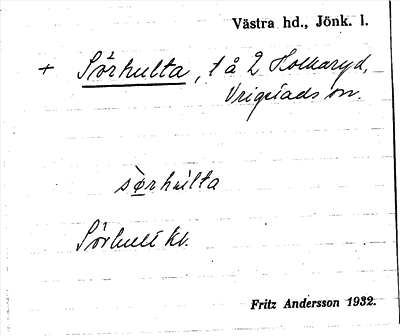 Västra hd., Jönk. l.
+ Sörhulta, 1 å 2 Holkaryd,
Vrigstads sn.
sö̀rhulta
Sörhult kt.
Fritz Andersson 1932.